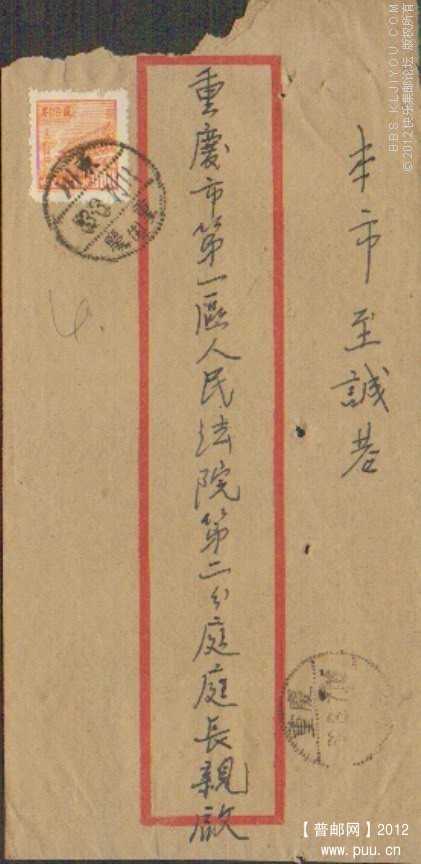 本市至誠巷
重慶市第一區人民法院第二分庭庭長親啟
重慶
BBS.KLJIYOU.COM
©2012 快乐集邮论坛 版权所有
【普邮网】2012
www.puu.cn